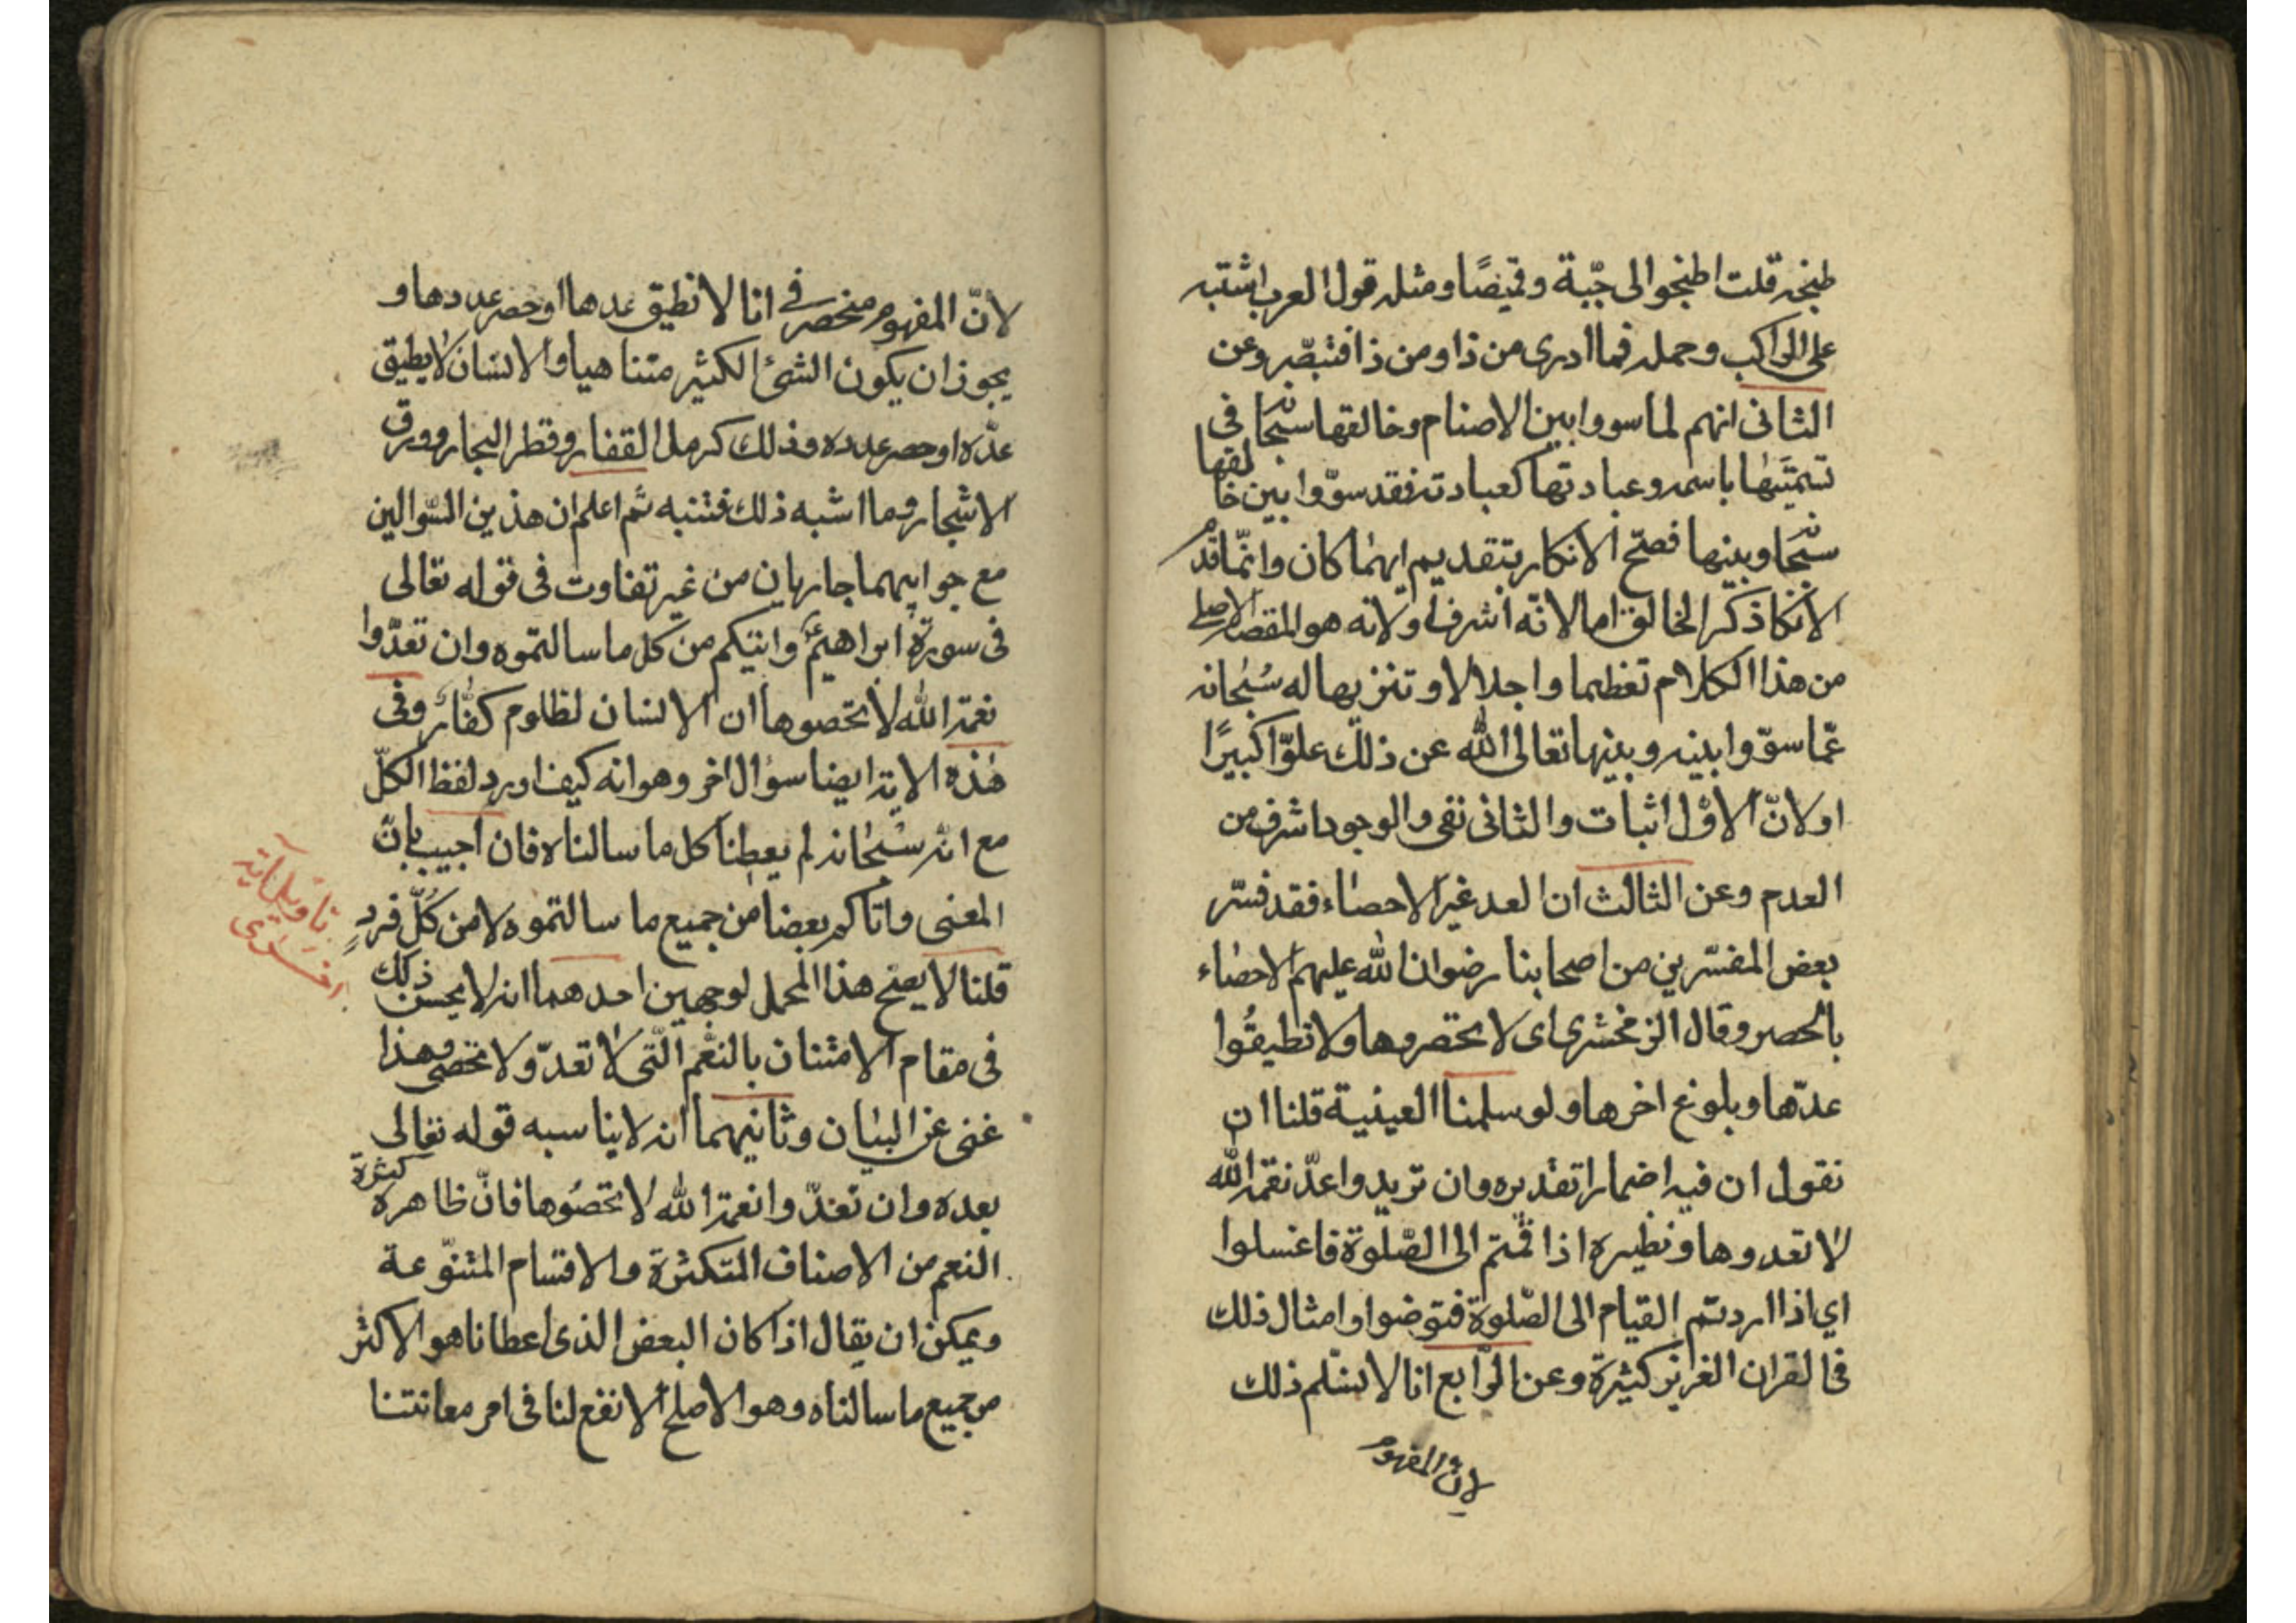 طبخه قلت اطبخوا لى جبّة وقميصًا ومثله قول العرب اشتبه
على الراكب وحمله فما ادرى من ذا ومن ذا فتبصّر وعن
الثانى انهم لما سووا بين الاصنام وخالقها سبحانه فى
تسميتها باسمه وعبادتها كعبادته فقد سوّوا بين خالقها
سبحانه وبينها فصحّ الانكار بتقديم ايهما كان وانّما قدم
الانكا ذكر الخالق اما لانّه اشرف او لانه هو المقصد الاصلى
من هذا الكلام تعظيما واجلالا وتنزيها له سبحانه
عمّا سوّوا بينه وبينها تعالى الله عن ذلك علوّا كبيرًا
او لانّ الاوّل اثبات والثانى نفى والوجود اشرف من
العدم وعن الثالث ان العد غير الاحصاء فقد فسّر
بعض المفسّرين من اصحابنا رضوان الله عليهم الاحصاء
بالحصر وقال الزمخشرى اى لا تحصروها ولا تطيقوا
عدّها وبلوغ اخرها ولو سلمنا العينية قلنا ان
نقول ان فيه اضمارا تقديره وان تريدوا عدّ نعمة الله
لا تعدوها ونظيره اذا قمتم الى الصّلوة فاغسلوا
اي اذا اردتم القيام الى الصّلوة فتوضوا وامثال ذلك
فى القران العزيز كثيرة وعن الرّابع انا لا نسلّم ذلك
لانّ المفهوم
لانّ المفهوم منحصر فى انا لا نطيق عدها او حصر عددها و
يجوز ان يكون الشئ الكثير متناهيا والانسان لا يطيق
عدّه او حصر عدده وذلك كرمل القفار وقطر البحار وورق
الاشجار وما اشبه ذلك فتنبه ثم اعلم ان هذين السّوالين
مع جوابيهما جاريان من غير تفاوت فى قوله تعالى
فى سورة ابراهيم واتيكم من كل ما سالتموه وان تعدّوا
نعمة الله لا تحصوها ان الانسان لظلوم كفّار وفى
هذه الاية ايضا سؤال اخر وهو انه كيف اورد لفظ الكلّ
مع انه سبحانه لم يعطنا كل ما سالناه فان اجيب بانّ
المعنى واتاكم بعضا من جميع ما سالتموه لا من كلّ فردٍ
قلنا لا يصح هذا المحمل لوجهين احدهما انه لا يحسن ذلك
فى مقام الامتنان بالنعم الّتى لا تعدّ ولا تحصى وهذا
غنى عن البيان وثانيهما انه لا يناسبه قوله تعالى
بعده وان تعدّوا نعمة الله لا تحصوها فانّ ظاهره كثرة
النعم من الاصناف المتكثرة والاقسام المتنوّعة
ويمكن ان يقال اذا كان البعض الذى اعطانا هو الاكثر
من جميع ما سالناه وهو الاصلح الانفع لنا فى امر معاشنا
تاويل آية
اخرى